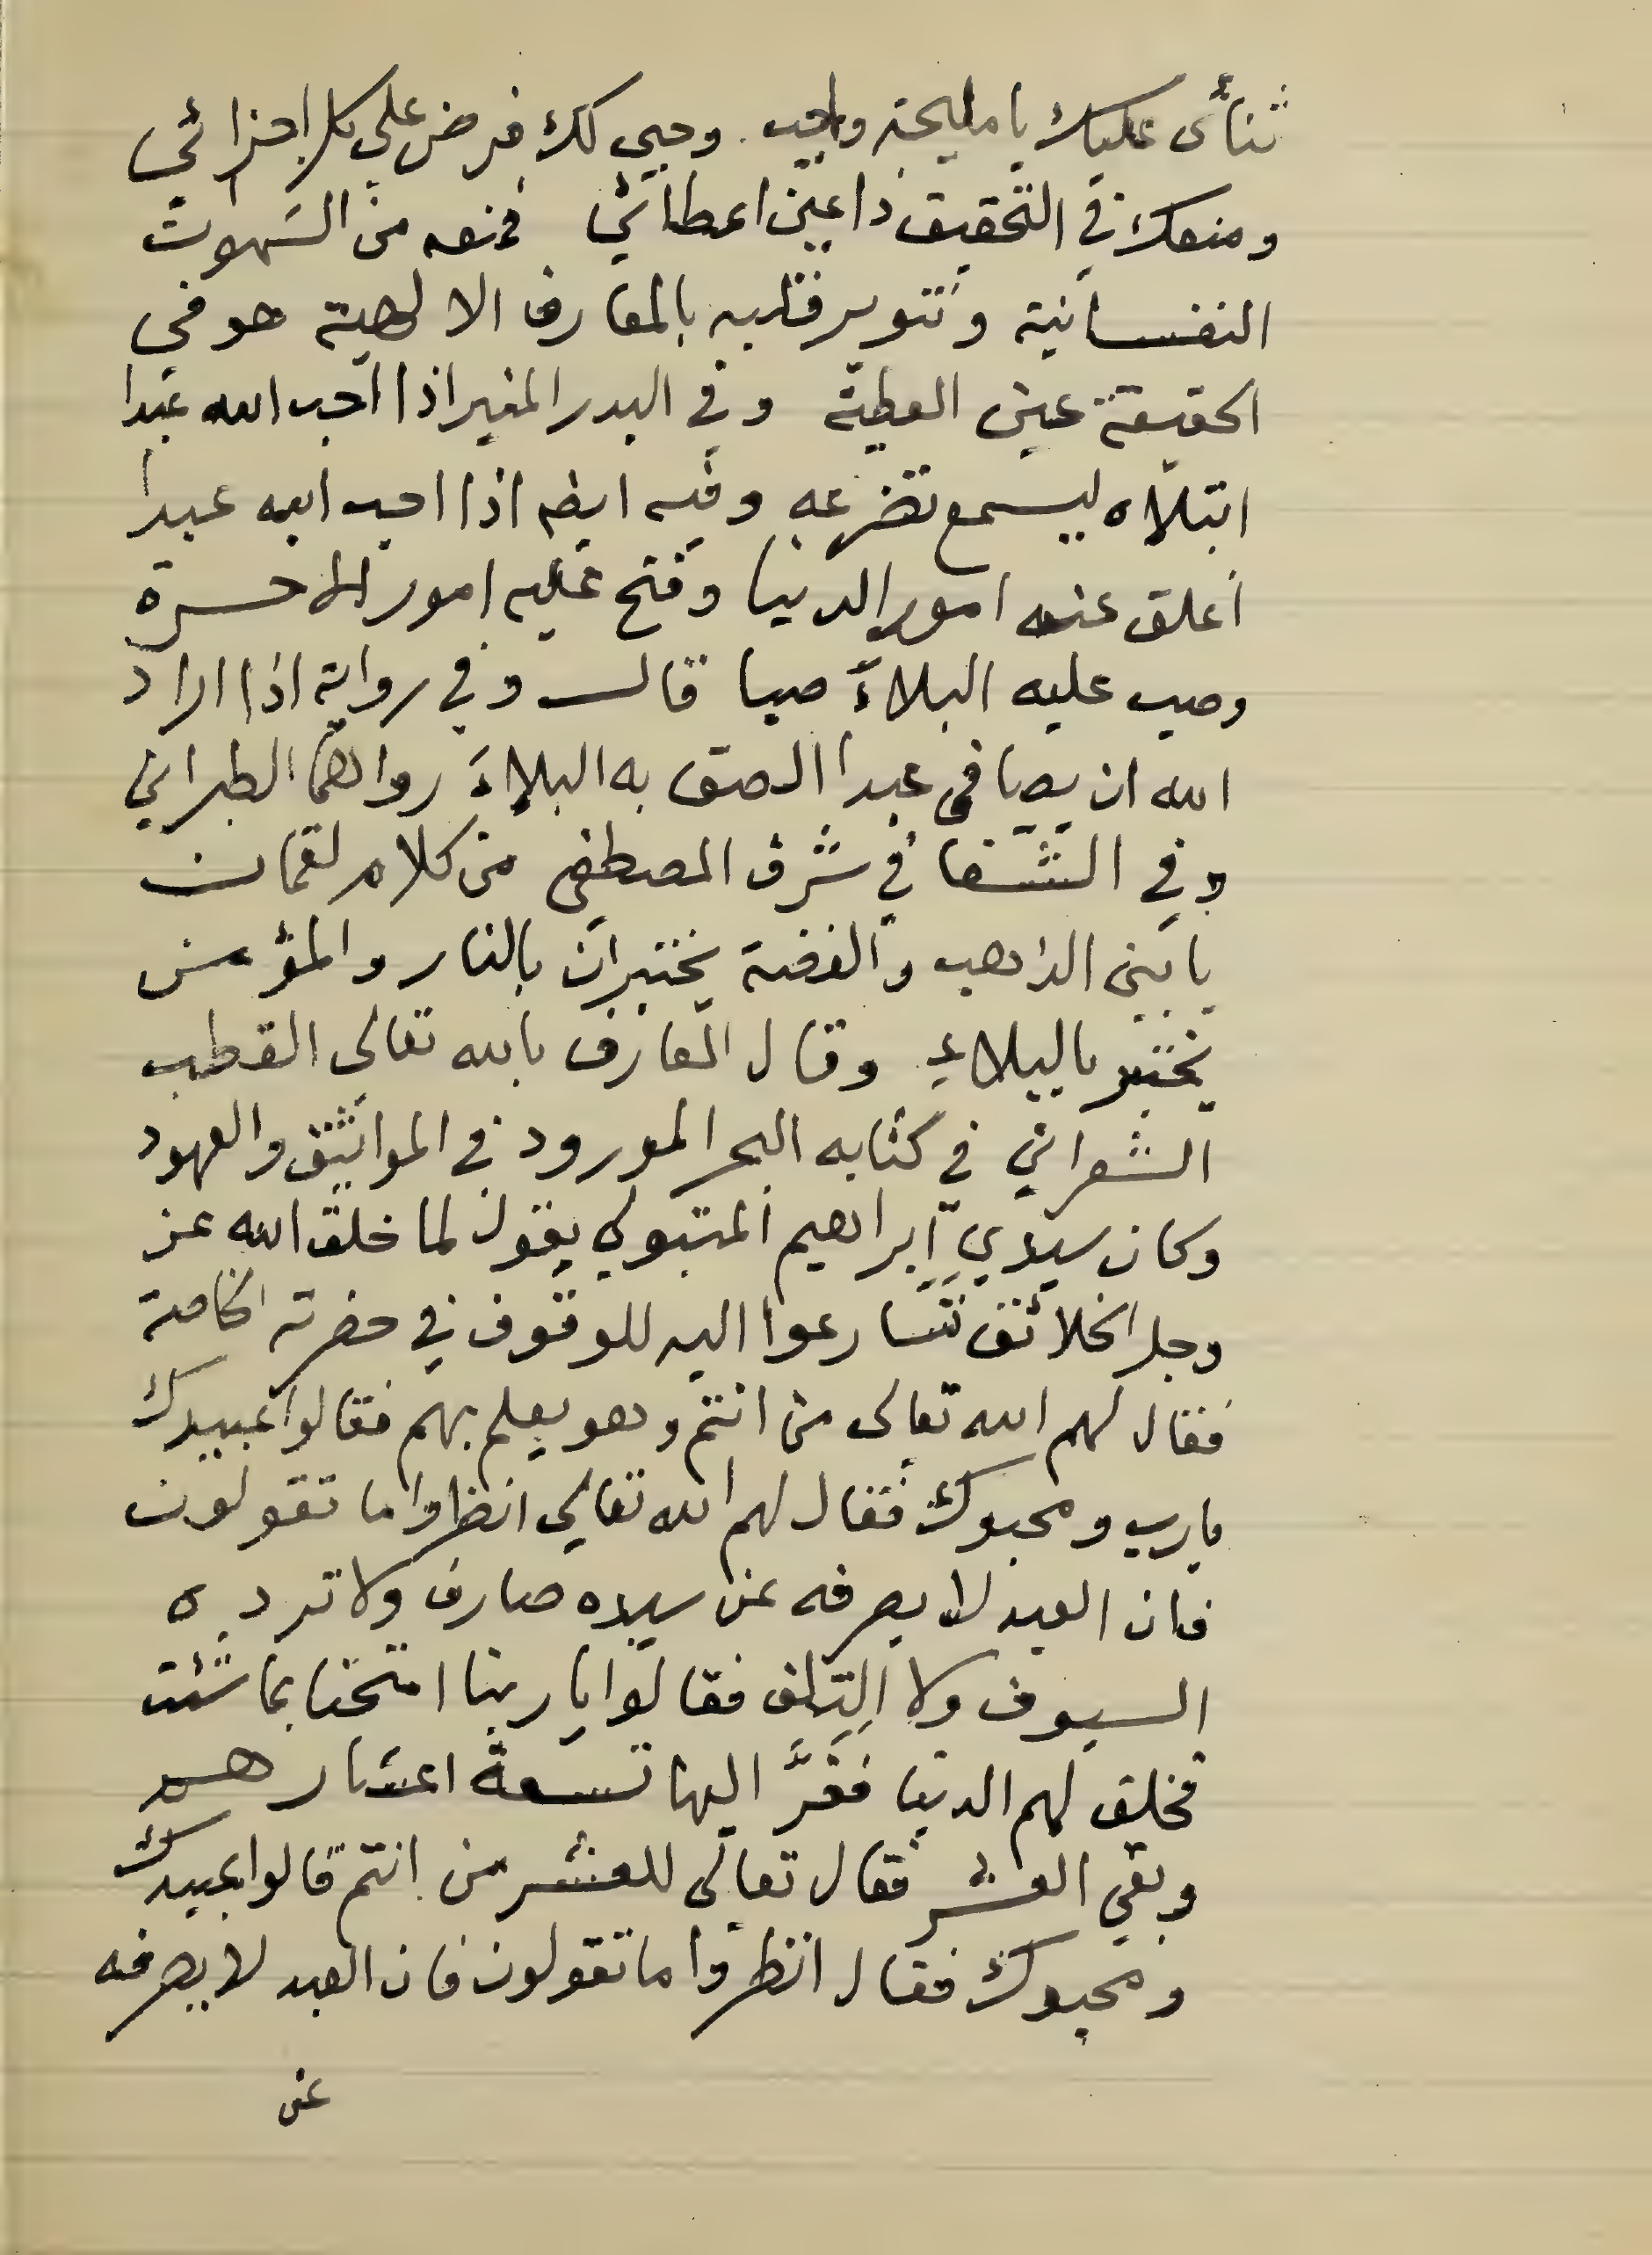 ثنائى عليك يا مليحة واجب. وحبي لك فرض على كل اجزائي
ومنعك في التحقيق ذا عين اعطائي فمنعه من الشهوت
النفسانية وتنوير قلبه بالمعارف الالهية هو في
الحقيقة عين العطية وفي البدر المنير اذا احب الله عبدا
ابتلاه ليسمع تضرعه وفيه ايضا اذا احب الله عبدا
اغلق عنه امور الدنيا وفتح عليه امور الاخرة
وصب عليه البلاء صبا قال وفي رواية اذا اراد
الله ان يصافي عبدا الصق به البلاء رواهما الطبراني
وفي الشفا في شرف المصطفى من كلام لقمان
يا بني الذهب والفضة يختبران بالنار والمؤمن
يختبر بالبلاء وقال العارف بالله تعالى القطب
الشعراني في كتابه البحر المورود في المواثيق والعهود
وكان سيدي ابراهيم المتبولي يقول لما خلق الله عز
وجل الخلائق تسارعوا اليه للوقوف في حضرته الخاصة
فقال لهم الله تعالى من انتم وهو يعلم بهم فقالوا عبيدك
يا رب ومحبوك فقال لهم الله تعالى انظروا ما تقولون
فان العبد لا يصرفه عن سيده صارف ولا ترده
السيوف ولا التلف فقالوا يا ربنا امتحنا بما شئت
فخلق لهم الدنيا ففرَّ اليها تسعة اعشارهم
وبقي العشر فقال تعالى للعشر من انتم قالوا عبيدك
ومحبوك فقال انظروا ما تقولون فان العبد لا يصرفه
عن